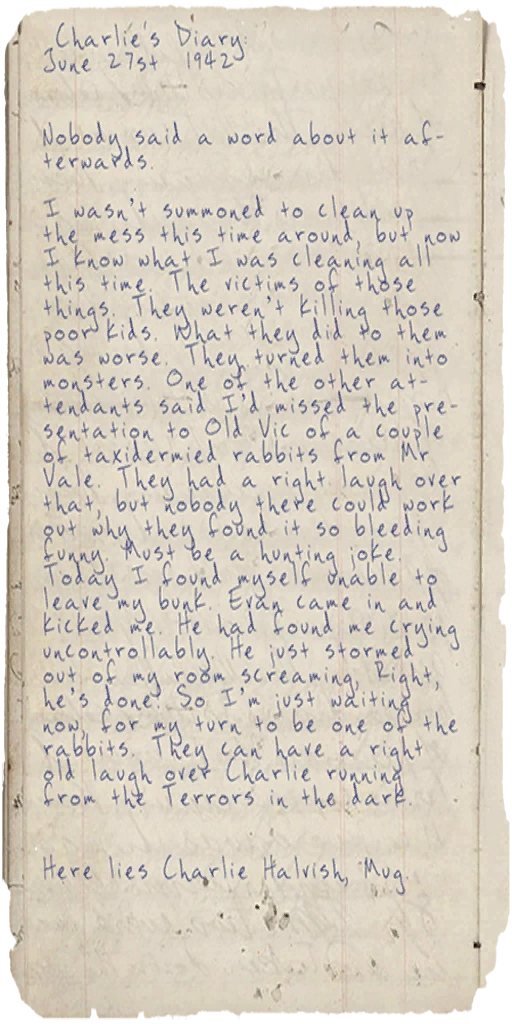 Charlie's Diary
June 27st 1942
Nobody said a word about it af-
terwards.
I wasn't summoned to clean up
the mess this time around, but now
I know what I was cleaning all
this time. The victims of those
things. They weren't killing those
poor kids. What they did to them
was worse. They turned them into
monsters. One of the other at-
tendants said I'd missed the pre-
sentation to Old Vic of a couple
of taxidermied rabbits from Mr
Vale. They had a right laugh over
that, but nobody there could work
out why they found it so bleeding
funny. Must be a hunting joke.
Today I found myself unable to
leave my bunk. Evan came in and
kicked me. He had found me crying
uncontrollably. He just stormed
out of my room screaming, Right,
he's done! So I'm just waiting
now, for my turn to be one of the
rabbits. They can have a right
old laugh over Charlie running
from the Terrors in the dark.
Here lies Charlie Halvish, Mug.